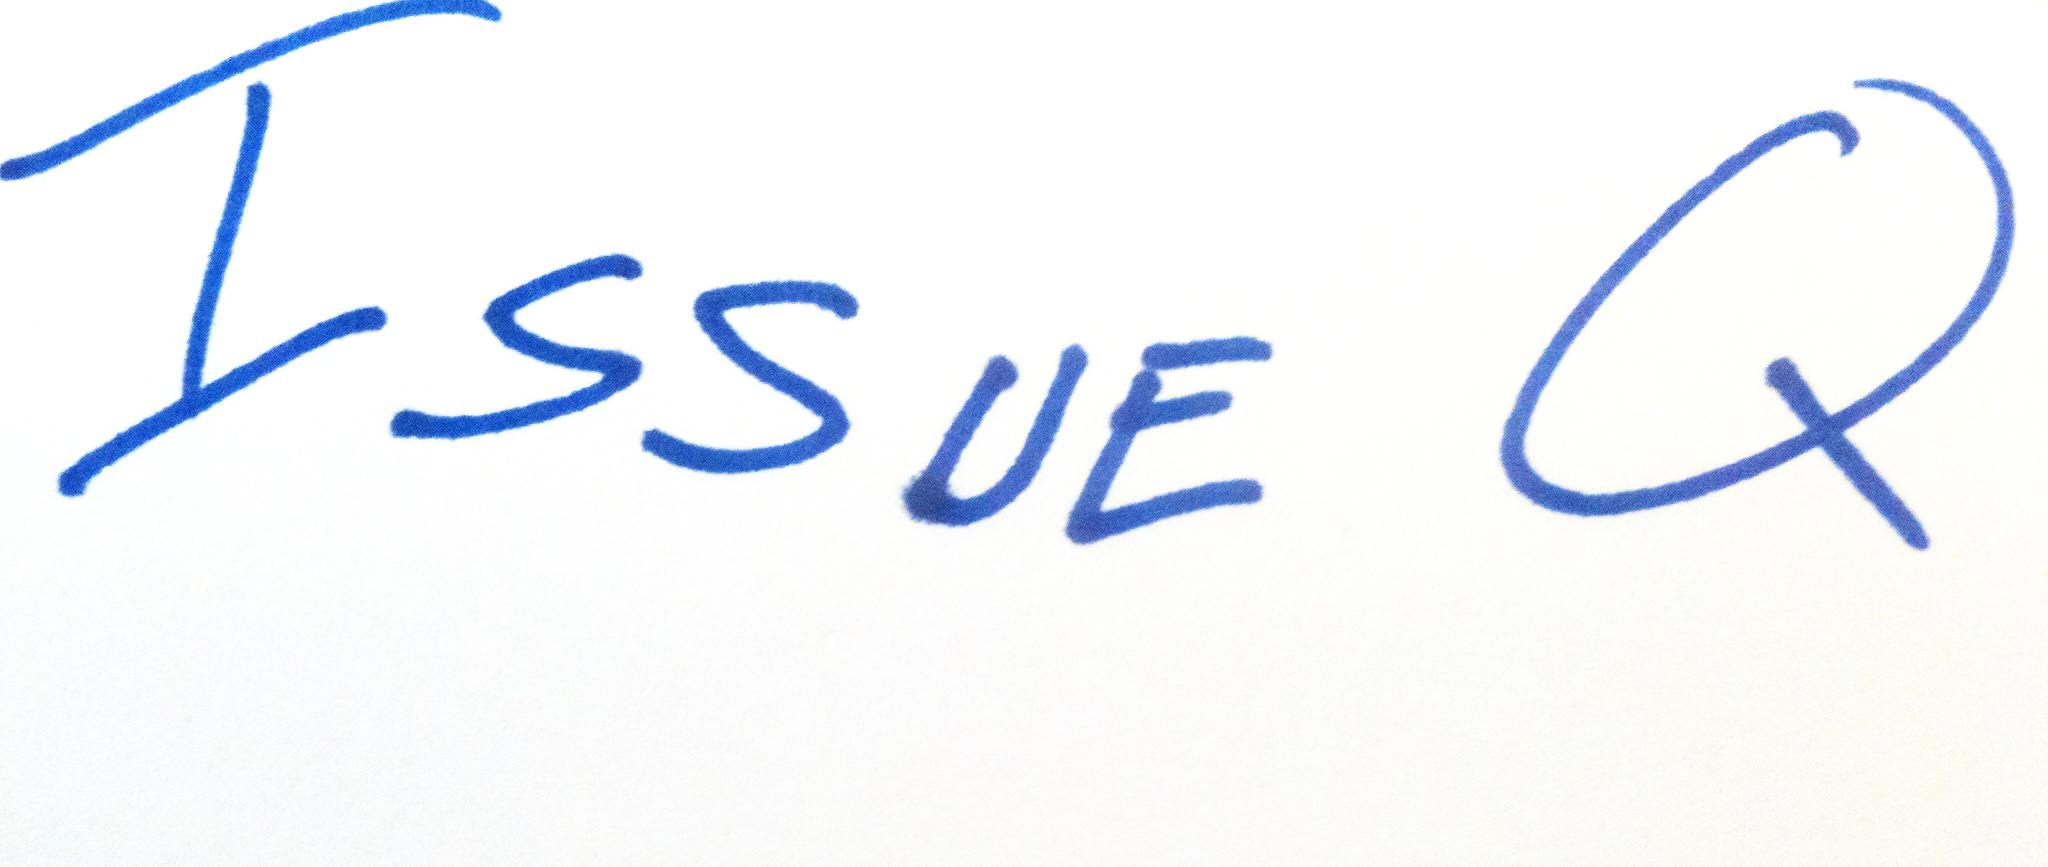 ISSUE Q